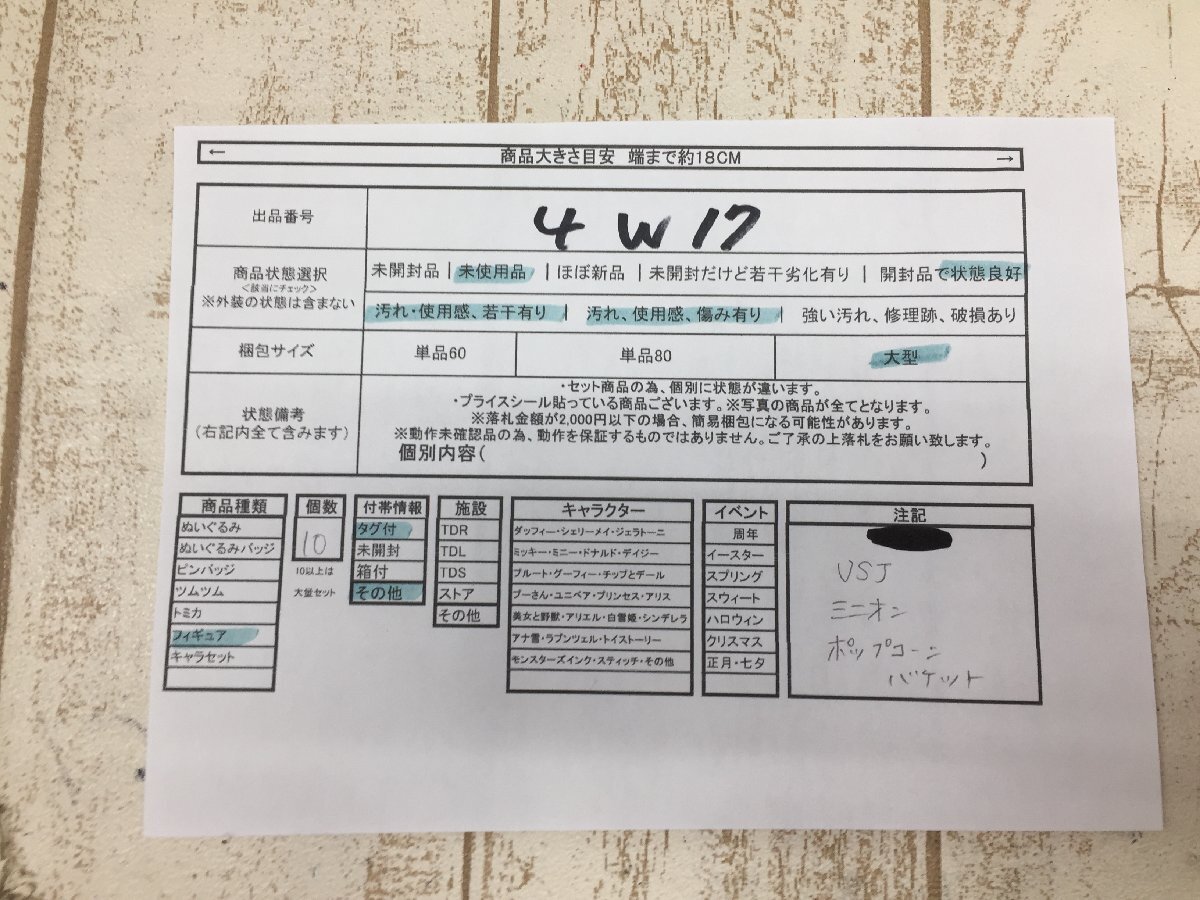 ← 商品大きさ目安 端まで約18CM →
出品番号 4 W 17
商品状態選択
<該当にチェック>
※外装の状態は含まない
未開封品 | 未使用品 | ほぼ新品 | 未開封だけど若干劣化有り | 開封品で状態良好
汚れ・使用感、若干有り | 汚れ、使用感、傷み有り | 強い汚れ、修理跡、破損あり
梱包サイズ 単品60 単品80 大型
状態備考
(右記内全て含みます)
・セット商品の為、個別に状態が違います。
・プライスシール貼っている商品ございます。※写真の商品が全てとなります。
※落札金額が2,000円以下の場合、簡易梱包になる可能性があります。
※動作未確認品の為、動作を保証するものではありません。ご了承の上落札をお願い致します。
個別内容( )
商品種類
ぬいぐるみ
ぬいぐるみバッジ
ピンバッジ
ツムツム
トミカ
フィギュア
キャラセット
個数
10
10以上は
大量セット
付帯情報
タグ付
未開封
箱付
その他
施設
TDR
TDL
TDS
ストア
その他
キャラクター
ダッフィー・シェリーメイ・ジェラトーニ
ミッキー・ミニー・ドナルド・デイジー
プルート・グーフィー・チップとデール
プーさん・ユニベア・プリンセス・アリス
美女と野獣・アリエル・白雪姫・シンデレラ
アナ雪・ラプンツェル・トイストーリー
モンスターズインク・スティッチ・その他
イベント
周年
イースター
スプリング
スウィート
ハロウィン
クリスマス
正月・七夕
注記
USJ
ミニオン
ポップコーン
バケット